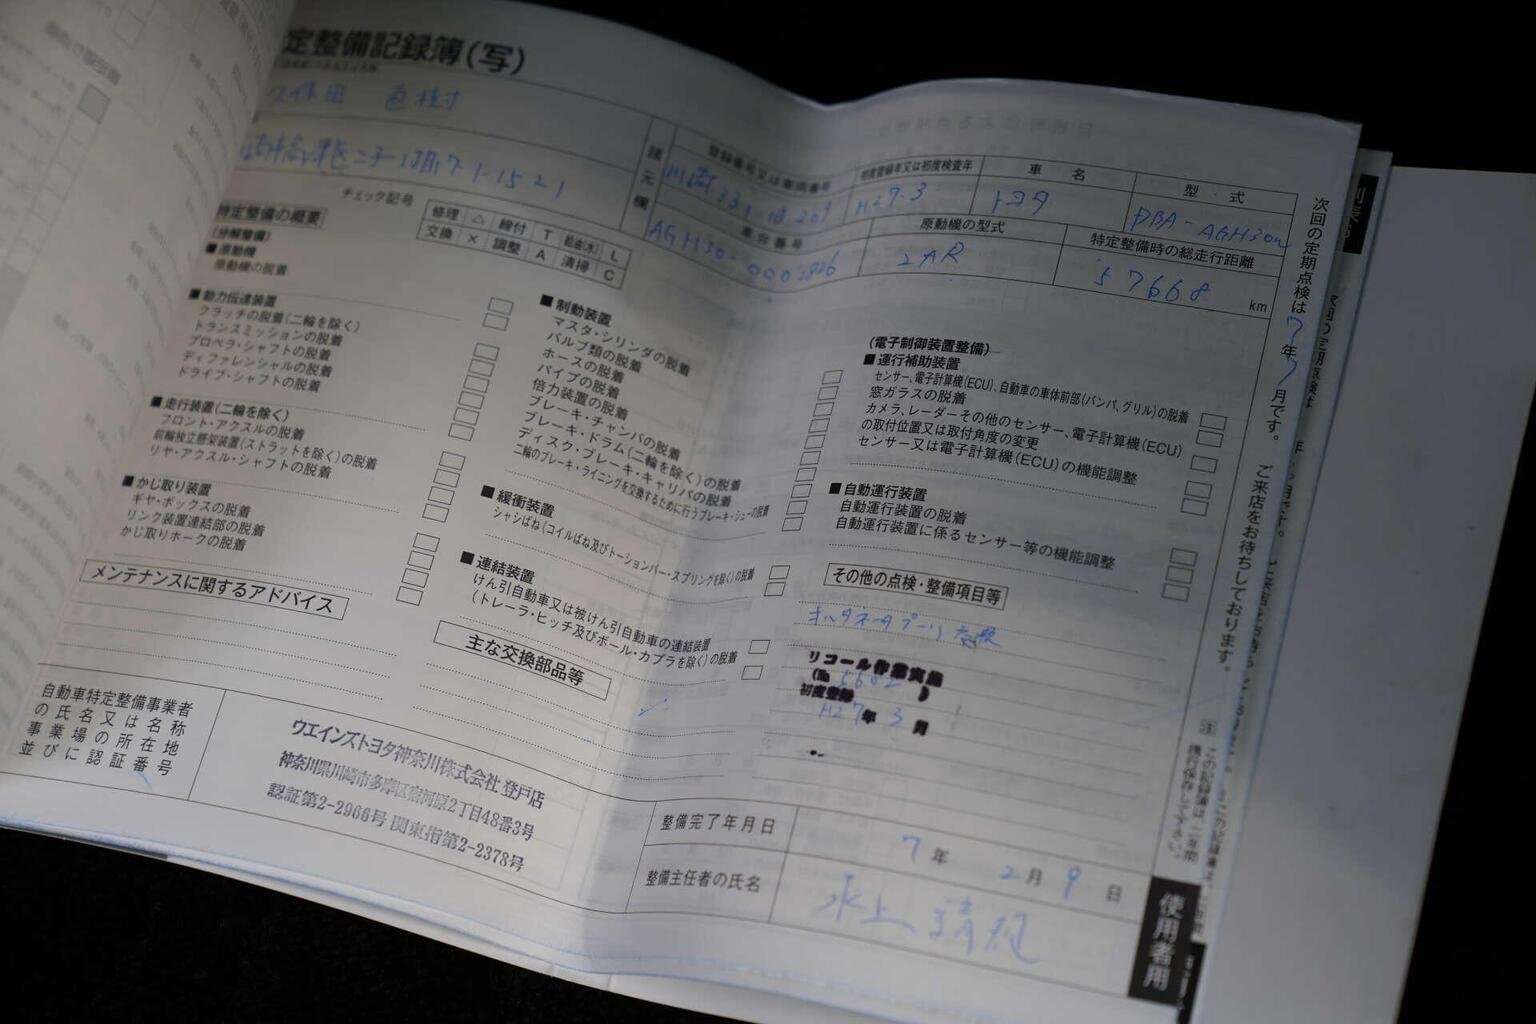 定整備記録簿(写)
諸元欄
登録番号又は車両番号
初度登録年又は初度検査年
車名
型・式
H27-3
トヨタ
DBA-AGH30W
車台番号
原動機の型式
特定整備時の総走行距離
2AR
57668 km
チェック記号
修理 △ 締付 T 給油(水) L
交換 × 調整 A 清掃 C
特定整備の概要
(分解整備)
■原動機
原動機の脱着
■動力伝達装置
クラッチの脱着(二輪を除く)
トランスミッションの脱着
プロペラ・シャフトの脱着
ディファレンシャルの脱着
ドライブ・シャフトの脱着
■走行装置(二輪を除く)
フロント・アクスルの脱着
前輪独立懸架装置(ストラットを除く)の脱着
リヤ・アクスル・シャフトの脱着
■かじ取り装置
ギヤ・ボックスの脱着
リンク装置連結部の脱着
かじ取りホークの脱着
メンテナンスに関するアドバイス
■制動装置
マスタ・シリンダの脱着
バルブ類の脱着
ホースの脱着
パイプの脱着
倍力装置の脱着
ブレーキ・チャンバの脱着
ブレーキ・ドラム(二輪を除く)の脱着
ディスク・ブレーキ・キャリパの脱着
二輪のブレーキ・ライニングを交換するために行うブレーキ・シューの脱着
■緩衝装置
シャシばね(コイルばね及びトーションバー・スプリングを除く)の脱着
■連結装置
けん引自動車又は被けん引自動車の連結装置
(トレーラ・ヒッチ及びボール・カプラを除く)の脱着
主な交換部品等
(電子制御装置整備)
■運行補助装置
センサー、電子計算機(ECU)、自動車の車体前部(バンパ、グリル)の脱着
窓ガラスの脱着
カメラ、レーダーその他のセンサー、電子計算機(ECU)
の取付位置又は取付角度の変更
センサー又は電子計算機(ECU)の機能調整
■自動運行装置
自動運行装置の脱着
自動運行装置に係るセンサー等の機能調整
その他の点検・整備項目等
オルタネータプーリ
リコール作業実施
初度登録
H27年 3月
次回の定期点検は7年 月です。 ご来店をお待ちしております。
自動車特定整備事業者
の氏名又は名称
事業場の所在地
並びに認証番号
ウエインズトヨタ神奈川株式会社 登戸店
神奈川県川崎市多摩区宿河原2丁目48番3号
認証第2-2966号 関東指第2-2378号
整備完了年月日
7年 2月 9日
整備主任者の氏名
使用者用